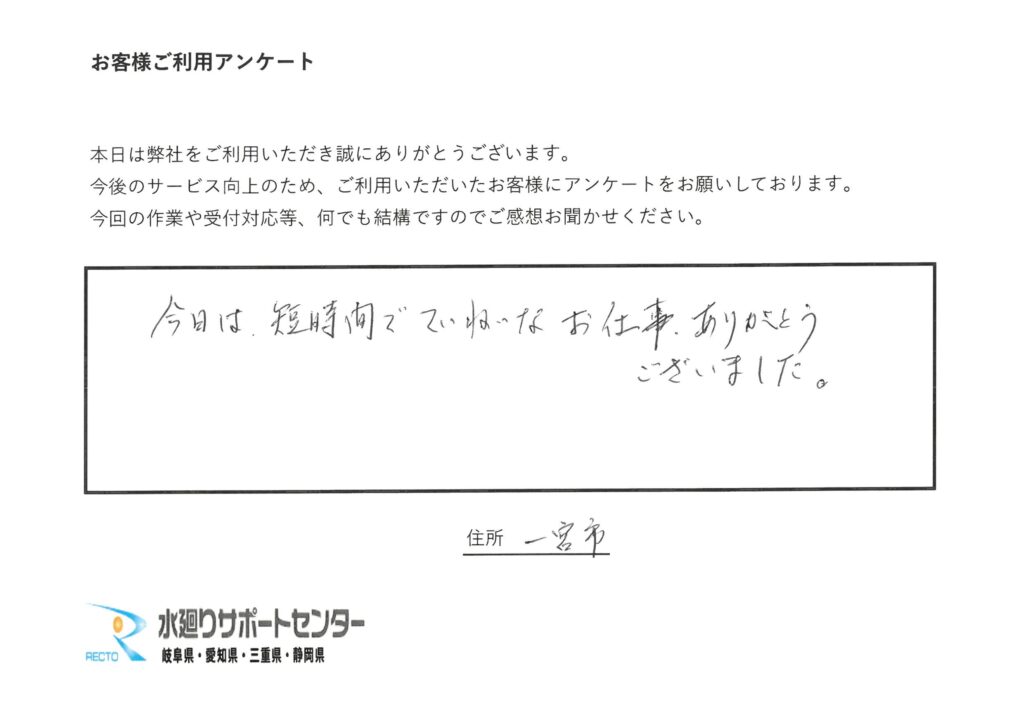 お客様ご利用アンケート
本日は弊社をご利用いただき誠にありがとうございます。
今後のサービス向上のため、ご利用いただいたお客様にアンケートをお願いしております。
今回の作業や受付対応等、何でも結構ですのでご感想お聞かせください。
今日は、短時間でていねいなお仕事、ありがとう
ございました。
住所 一宮市
RECTO 水廻りサポートセンター
岐阜県・愛知県・三重県・静岡県